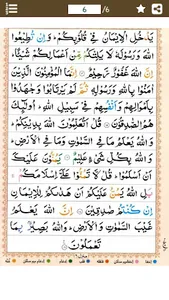 6 /6
يَدْخُلِ الْاِيْمَانُ فِيْ قُلُوْبِكُمْ ؕ وَاِنْ تُطِيْعُوا
اللّٰهَ وَرَسُوْلَهٗ لَا يَلِتْكُمْ مِّنْ اَعْمَالِكُمْ شَيْـًٔا ؕ
اِنَّ اللّٰهَ غَفُوْرٌ رَّحِيْمٌ اِنَّمَا الْمُؤْمِنُوْنَ الَّذِيْنَ
اٰمَنُوْا بِاللّٰهِ وَرَسُوْلِهٖ ثُمَّ لَمْ يَرْتَابُوْا وَجٰهَدُوْا
بِاَمْوَالِهِمْ وَاَنْفُسِهِمْ فِيْ سَبِيْلِ اللّٰهِ ؕ اُولٰٓئِكَ
هُمُ الصّٰدِقُوْنَ قُلْ اَتُعَلِّمُوْنَ اللّٰهَ بِدِيْنِكُمْ ؕ
وَاللّٰهُ يَعْلَمُ مَا فِي السَّمٰوٰتِ وَمَا فِي الْاَرْضِ ؕ
وَاللّٰهُ بِكُلِّ شَيْءٍ عَلِيْمٌ يَمُنُّوْنَ عَلَيْكَ
اَنْ اَسْلَمُوْا ؕ قُلْ لَّا تَمُنُّوْا عَلَيَّ اِسْلَامَكُمْ ۚ بَلِ
اللّٰهُ يَمُنُّ عَلَيْكُمْ اَنْ هَدٰىكُمْ لِلْاِيْمَانِ
اِنْ كُنْتُمْ صٰدِقِيْنَ اِنَّ اللّٰهَ يَعْلَمُ
غَيْبَ السَّمٰوٰتِ وَالْاَرْضِ ؕ وَاللّٰهُ بَصِيْرٌۢ بِمَا
تَعْمَلُوْنَ